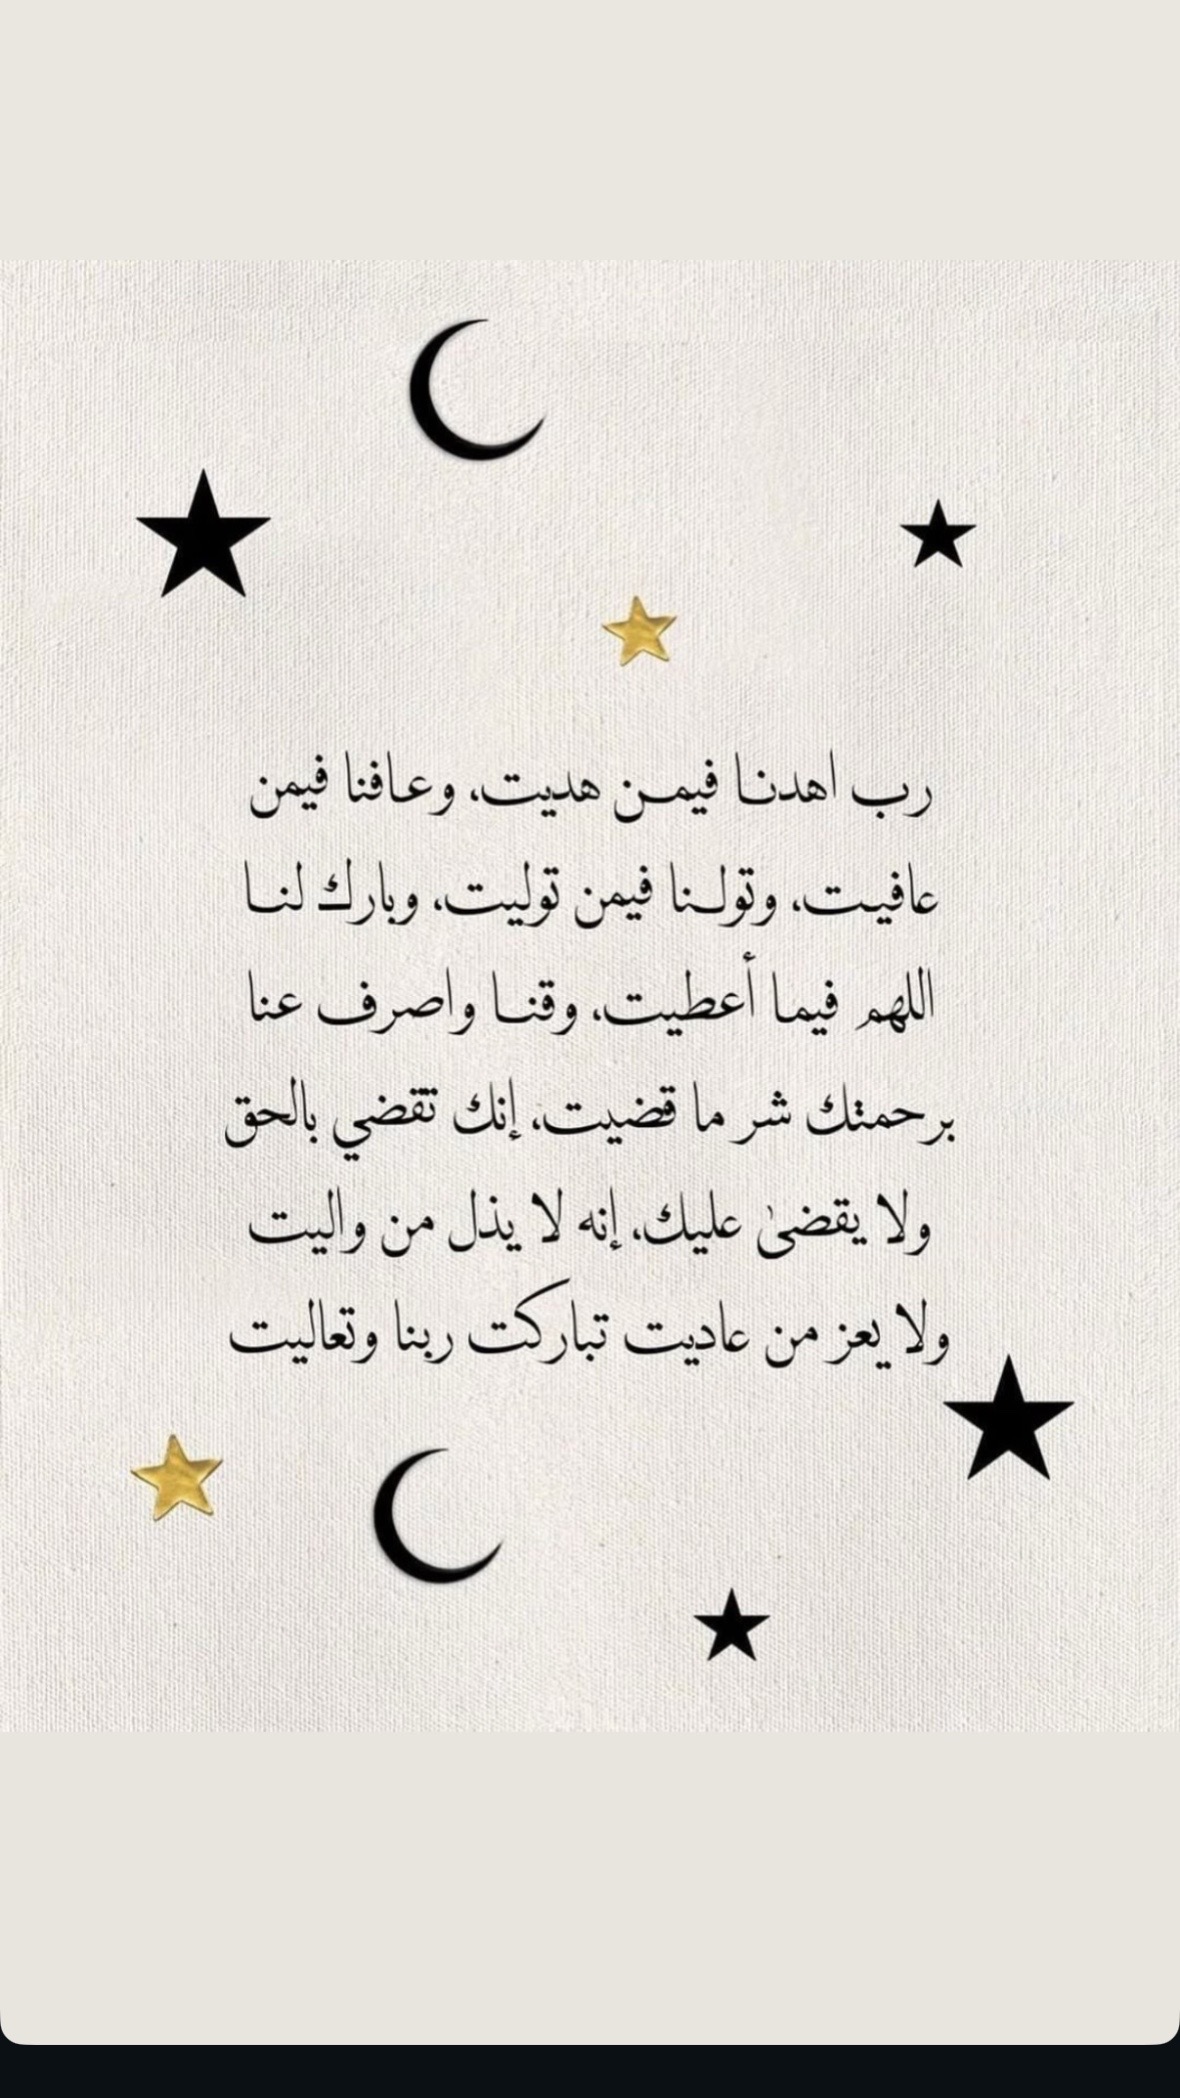 رب اهدنا فيمن هديت، وعافنا فيمن
عافيت، وتولنا فيمن توليت، وبارك لنا
اللهم فيما أعطيت، وقنا واصرف عنا
برحمتك شر ما قضيت، إنك تقضي بالحق
ولا يقضىٰ عليك، إنه لا يذل من واليت
ولا يعز من عاديت تباركت ربنا وتعاليت